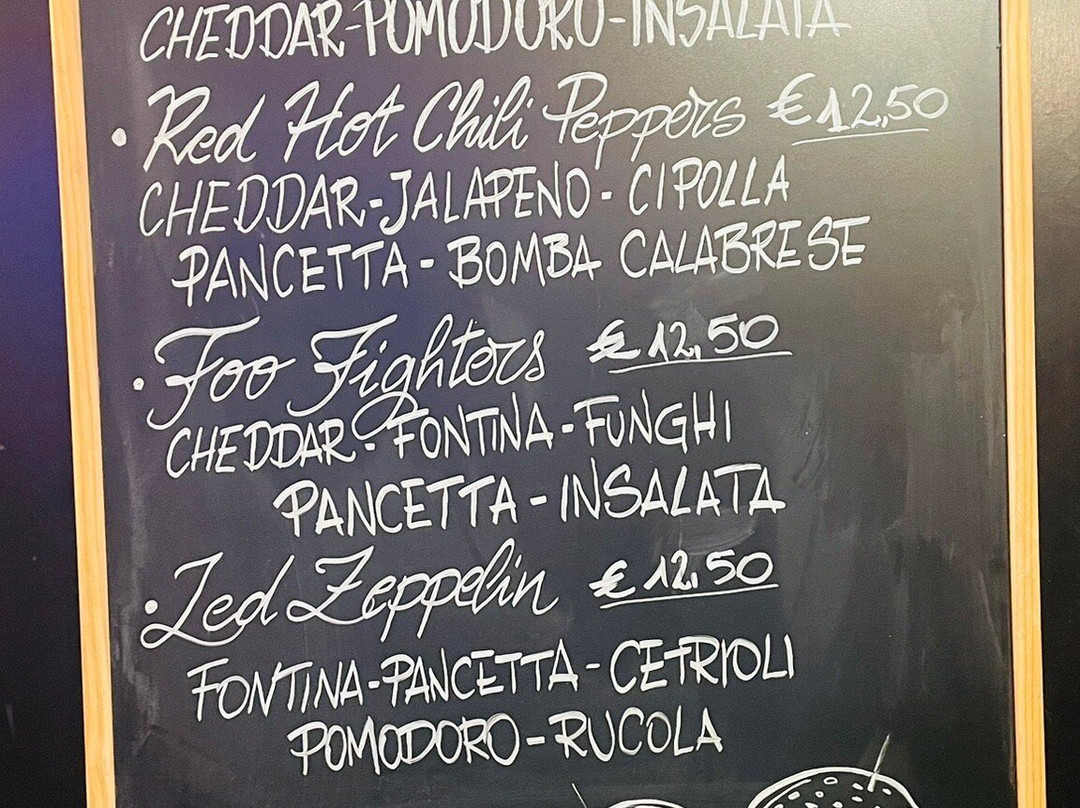 CHEDDAR-POMODORO-INSALATA
• Red Hot Chili Peppers €12,50
CHEDDAR-JALAPENO-CIPOLLA
PANCETTA-BOMBA CALABRESE
• Foo Fighters €12,50
CHEDDAR-FONTINA-FUNGHI
PANCETTA-INSALATA
• Led Zeppelin €12,50
FONTINA-PANCETTA-CETRIOLI
POMODORO-RUCOLA